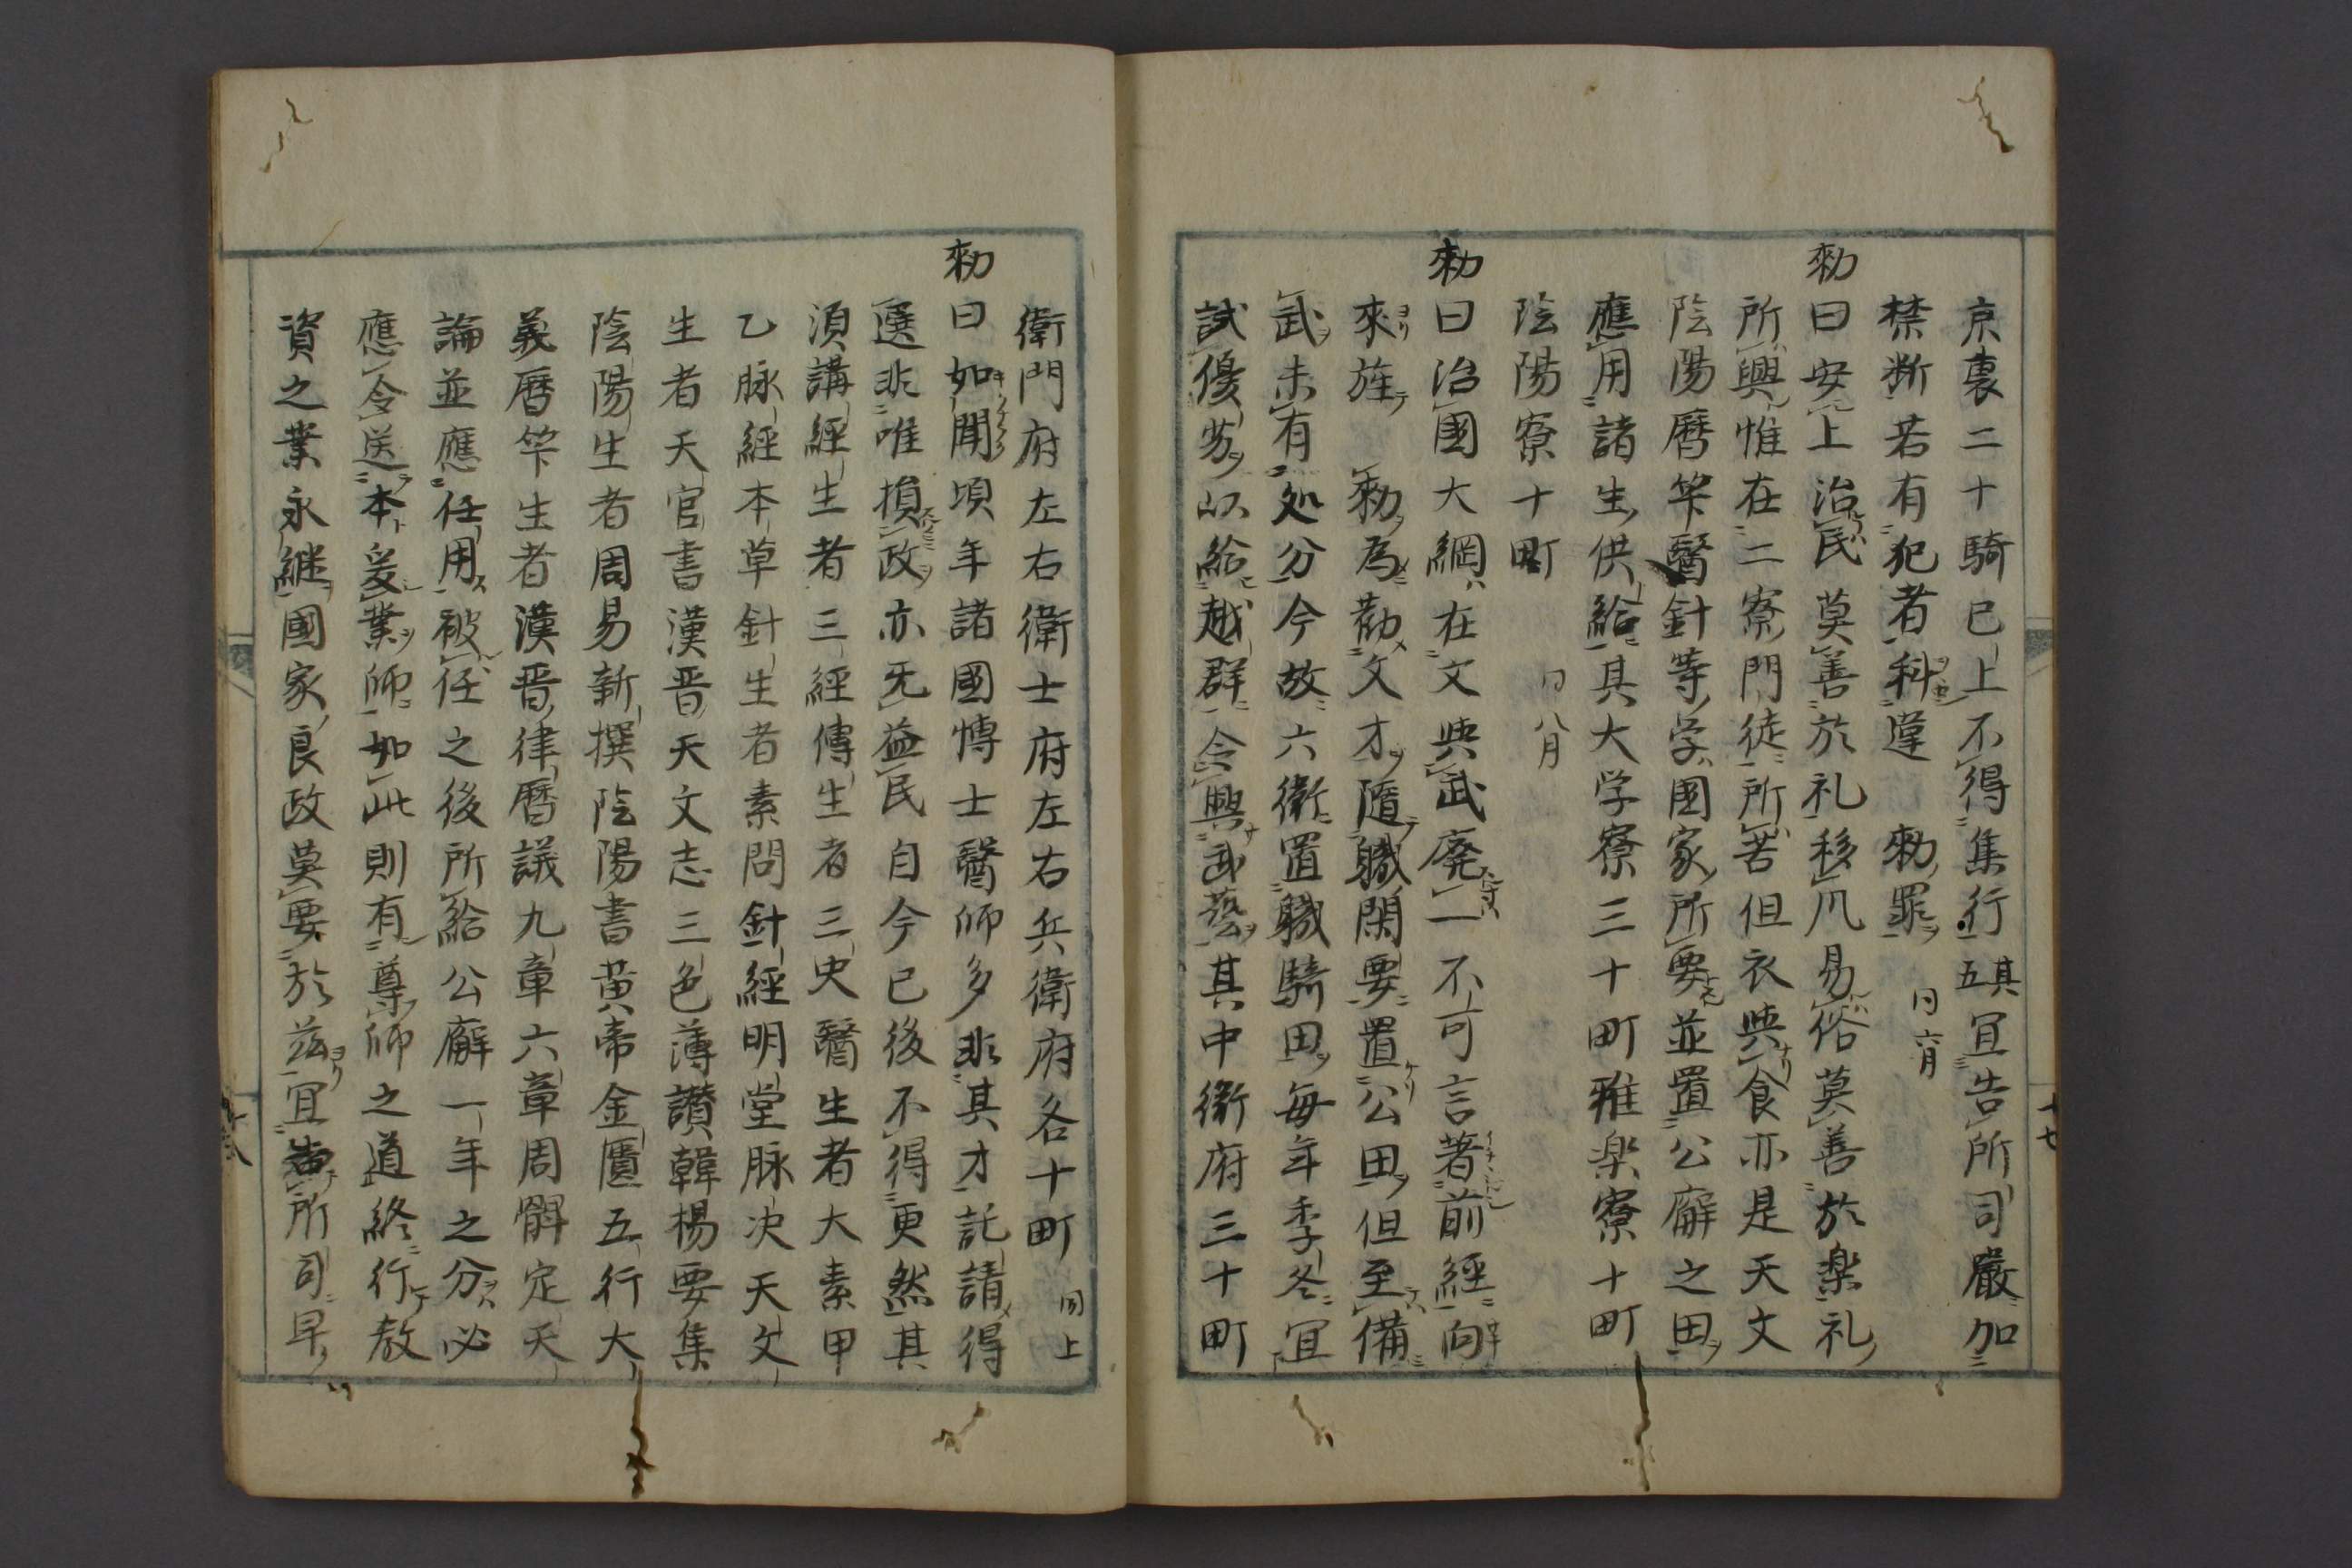 京裏二十騎已上不得集行其五宜告所司嚴加
禁断若有犯者科違勅罪 同六月
勅曰安上治民莫善於礼移風易俗莫善於楽礼
所興惟在二寮門徒所苦但衣與食亦是天文
陰陽暦竿醫針等学国家所要並置公廨之田
應用諸生供給其大学寮三十町雅楽寮十町
陰陽寮十町 同八月
勅曰治國大綱在文與武廃一不可言著前經向
來旌 勅為勸文才随職閑要置公田但至備
武未有処分今故六衛置職騎田毎年季冬宜
試優劣以給越群令興武藝其中衛府三十町
十七
衛門府左右衛士府左右兵衛府各十町 同上
勅曰如聞頃年諸國博士醫師多非其才託請得
選非唯損政亦无益民自今已後不得更然其
須講經生者三經傳生者三史醫生者大素甲
乙脉經本草針生者素問針經明堂脉决天文
生者天官書漢晋天文志三色薄讃韓楊要集
陰陽生者周易新撰陰陽書黄帝金匱五行大
義暦竿生者漢晋律暦議九章六章周髀定天
論並應任用被任之後所給公廨一年之分必
應令送本受業師如此則有尊師之道終行教
資之業永継國家良政莫要於茲宜告所司早
十八